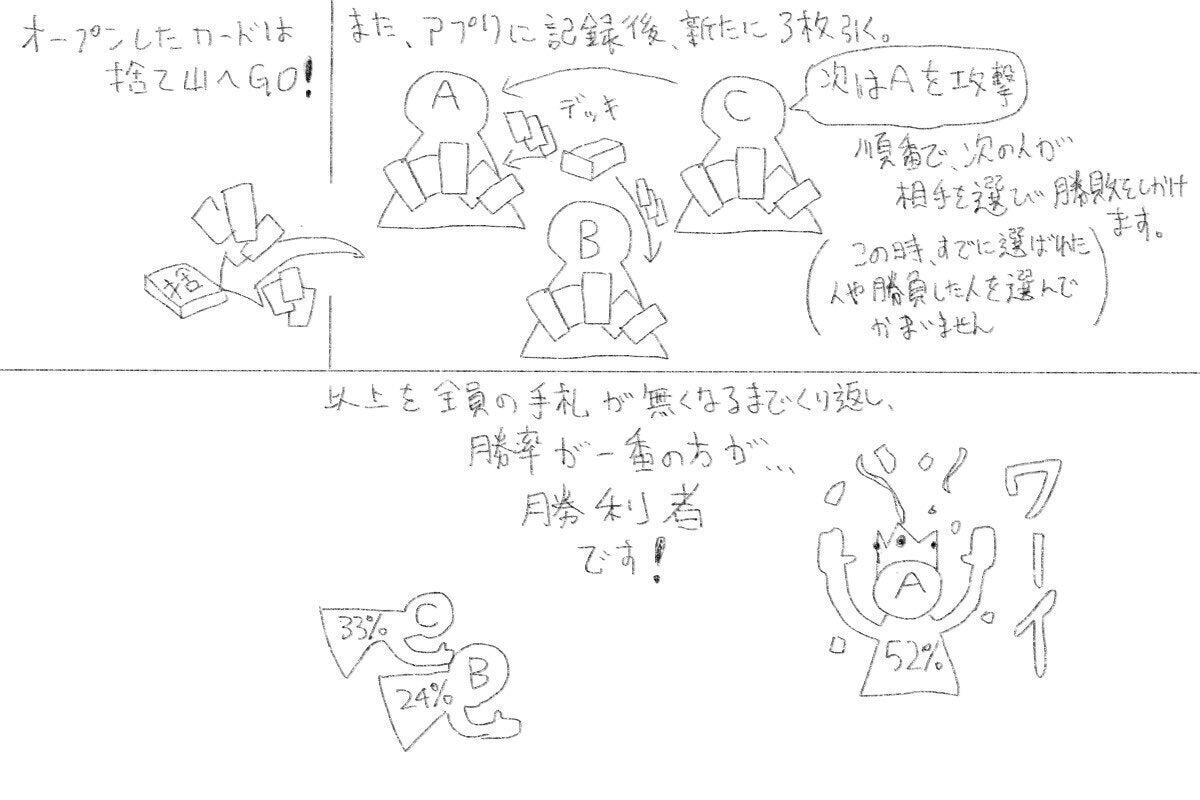 オープンしたカードは
捨て山へGO!
また、アプリに記録後、新たに3枚引く。
A
デッキ
C
次はAを攻撃
B
捨
順番で、次の人が
相手を選び勝敗をしかけ
ます。
(この時、すでに選ばれた
人や勝負した人を選んで
かまいません)
以上を全員の手札が無くなるまでくり返し、
勝率が一番の方が...
勝利者
です!
ワーイ
A
52%
C
33%
B
24%